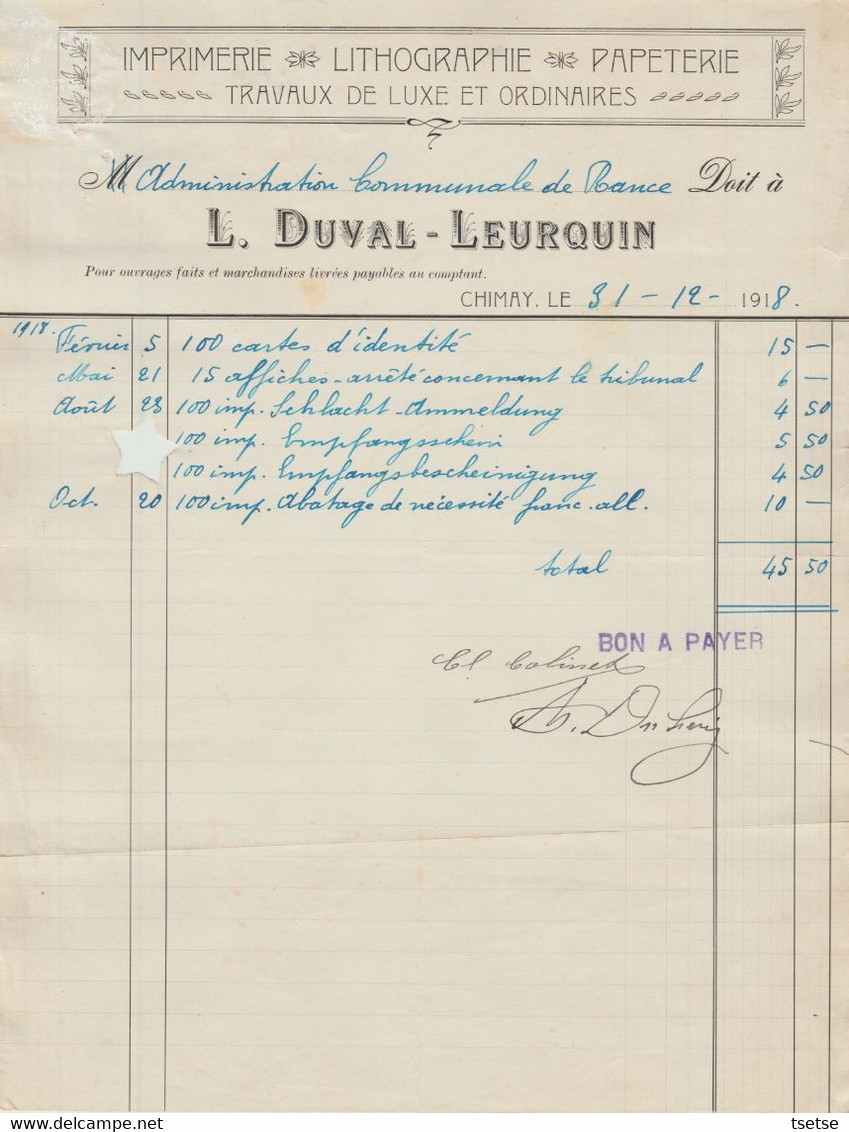 IMPRIMERIE LITHOGRAPHIE PAPETERIE
TRAVAUX DE LUXE ET ORDINAIRES
M Administration Communale de Rance Doit à
L. DUVAL - LEURQUIN
Pour ouvrages faits et marchandises livrées payables au comptant.
CHIMAY, LE 31 - 12 - 1918.
1918.
Février 5 100 cartes d'identité 15 —
Mai 21 15 affiches - arrêté concernant le tribunal 6 —
Août 23 100 imp. Schlacht-Ammeldung 4 50
100 imp. Empfangsschein 5 50
100 imp. Empfangsbescheinigung 4 50
Oct. 20 100 imp. Abatage de nécessité franc. all. 10 —
total 45 50
BON A PAYER
Cl. Colinet
tsetse